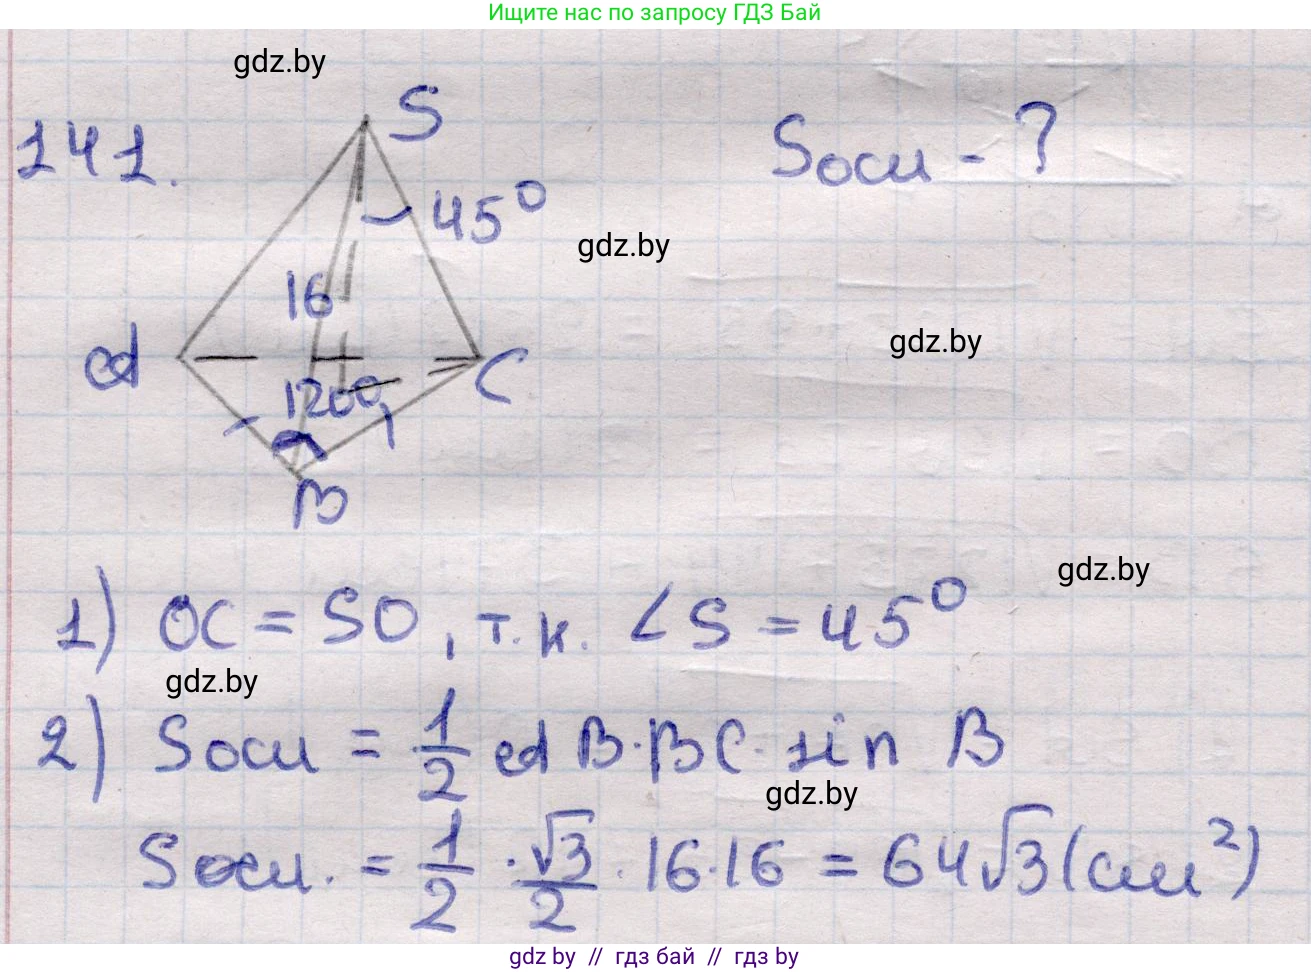 Ищите нас по запросу ГДЗ Бай
gdz.by
141.
S
Sосн - ?
45°
gdz.by
16
gdz.by
A
120°
C
B
gdz.by
1) OC = SO, т.к. ∠S = 45°
gdz.by
2) Sосн = 1/2 AB·BC·sin B
gdz.by
Sосн. = 1/2 · √3/2 · 16·16 = 64√3 (см²)
gdz.by // гдз бай // гдз by